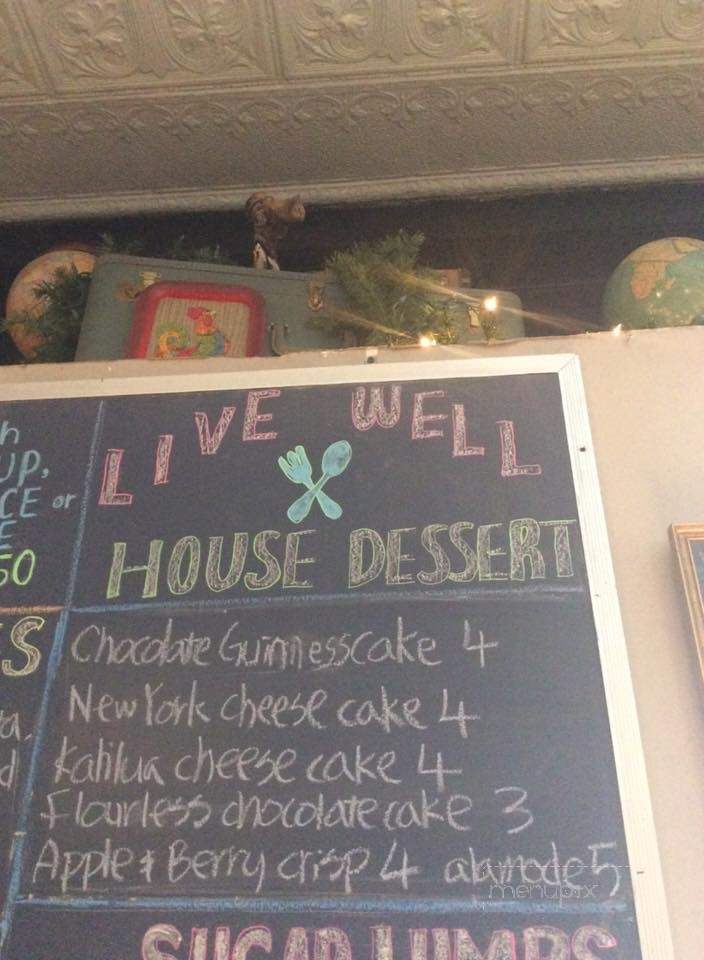 h
UP,
CE or
E
50
S
LIVE WELL
HOUSE DESSERT
Chocolate Guinness cake 4
New York cheese cake 4
Kahlua cheese cake 4
Flourless chocolate cake 3
Apple & Berry crisp 4 alamode 5
menupix
SUGAR LUMPS